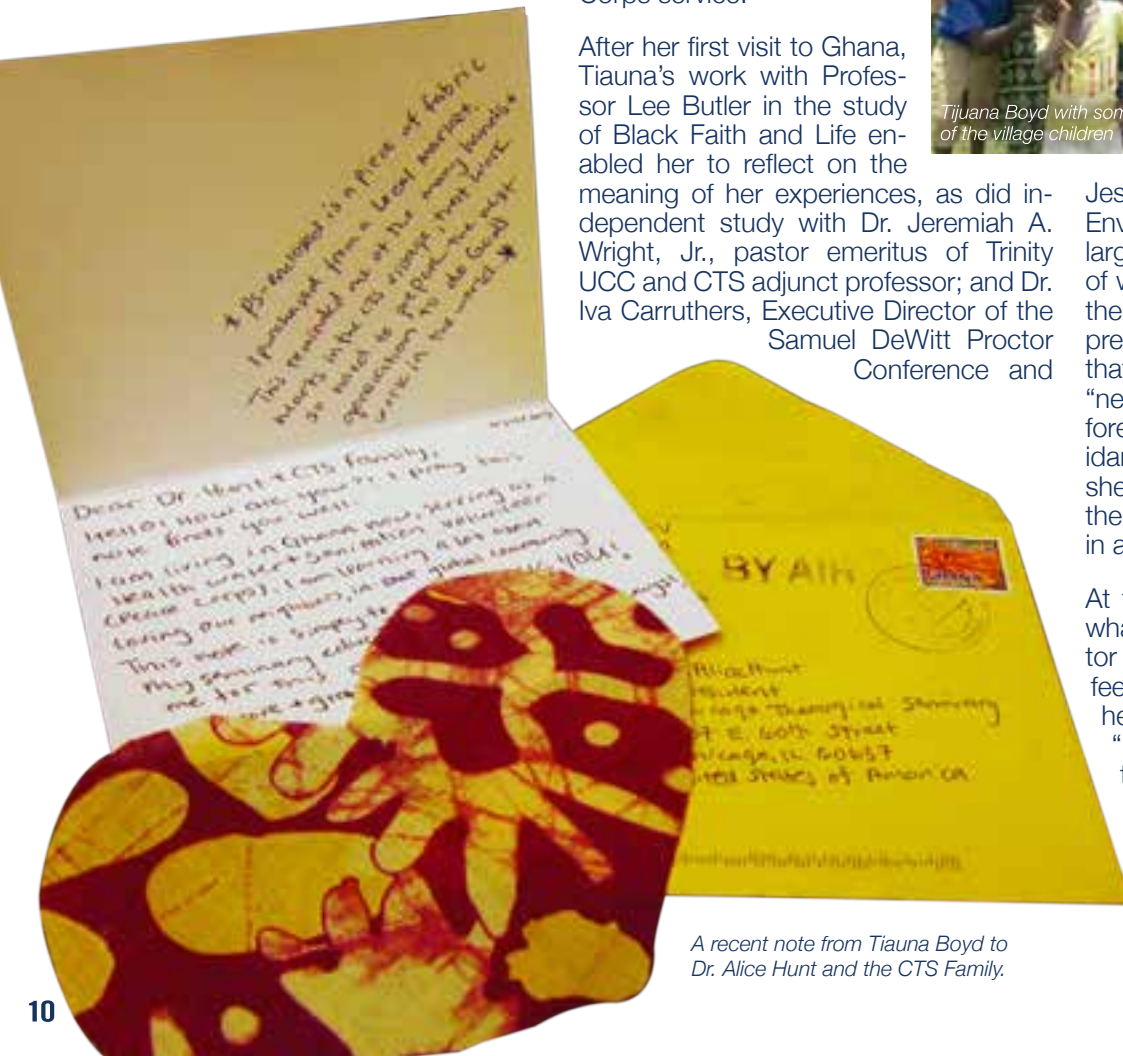 Corps service.
After her first visit to Ghana,
Tiauna's work with Profes-
sor Lee Butler in the study
of Black Faith and Life en-
abled her to reflect on the
meaning of her experiences, as did in-
dependent study with Dr. Jeremiah A.
Wright, Jr., pastor emeritus of Trinity
UCC and CTS adjunct professor; and Dr.
Iva Carruthers, Executive Director of the
Samuel DeWitt Proctor
Conference and
Tijuana Boyd with som
of the village children
Jes
Env
larg
of v
the
pre
that
"ne
fore
idar
she
the
in a
At
wha
tor
fee
he
"
* PS- enclosed is a piece of fabric
I purchased from a local market.
This reminded me of the many
hearts in the CTS village, that work
so hard to prepare the next
generation to do Good
work in the world *
Dear Dr. Hunt & CTS Family,
Hello! How are you? I pray this
note finds you well.
I am living in Ghana now, serving as a
Health Water & Sanitation Volunteer
(Peace Corps). I am learning a lot about
loving our neighbors, in our global community
This note is simply to
YOU!
my seminary
me for this
BY AIR
Alice Hunt
Theological Seminary
7 E. 60th Street
hicago, IL 60637
ited States of America
A recent note from Tiauna Boyd to
Dr. Alice Hunt and the CTS Family.
10